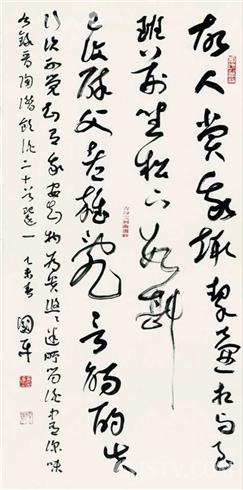 故人赏我趣挈壶相与至
班荆坐松下数斟
已复醉父老杂乱言觞酌失
行次不觉知有我安知物为贵悠悠迷所留酒中有深味
右录晋陶潜饮酒二十首选一 乙未春 国平